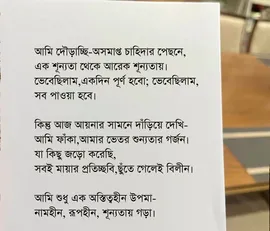 আমি দৌড়াচ্ছি-অসমাপ্ত চাহিদার পেছনে,
এক শূন্যতা থেকে আরেক শূন্যতায়।
ভেবেছিলাম,একদিন পূর্ণ হবো; ভেবেছিলাম,
সব পাওয়া হবে।
কিন্তু আজ আয়নার সামনে দাঁড়িয়ে দেখি-
আমি ফাঁকা,আমার ভেতর শুন্যতার গর্জন।
যা কিছু জড়ো করেছি,
সবই মায়ার প্রতিচ্ছবি,ছুঁতে গেলেই বিলীন।
আমি শুধু এক অস্তিত্বহীন উপমা-
নামহীন, রূপহীন, শূন্যতায় গড়া।